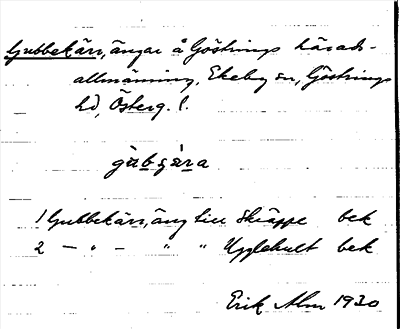 Gubbekärr, ängar å Göstrings härads-
allmänning, Ekeby sn, Göstrings
hd, Österg. l.
gàbɕára
1 Gubbekärr, äng till Skräppe bek
2 — " — " " Ugglehult bek
Erik Alm 1930